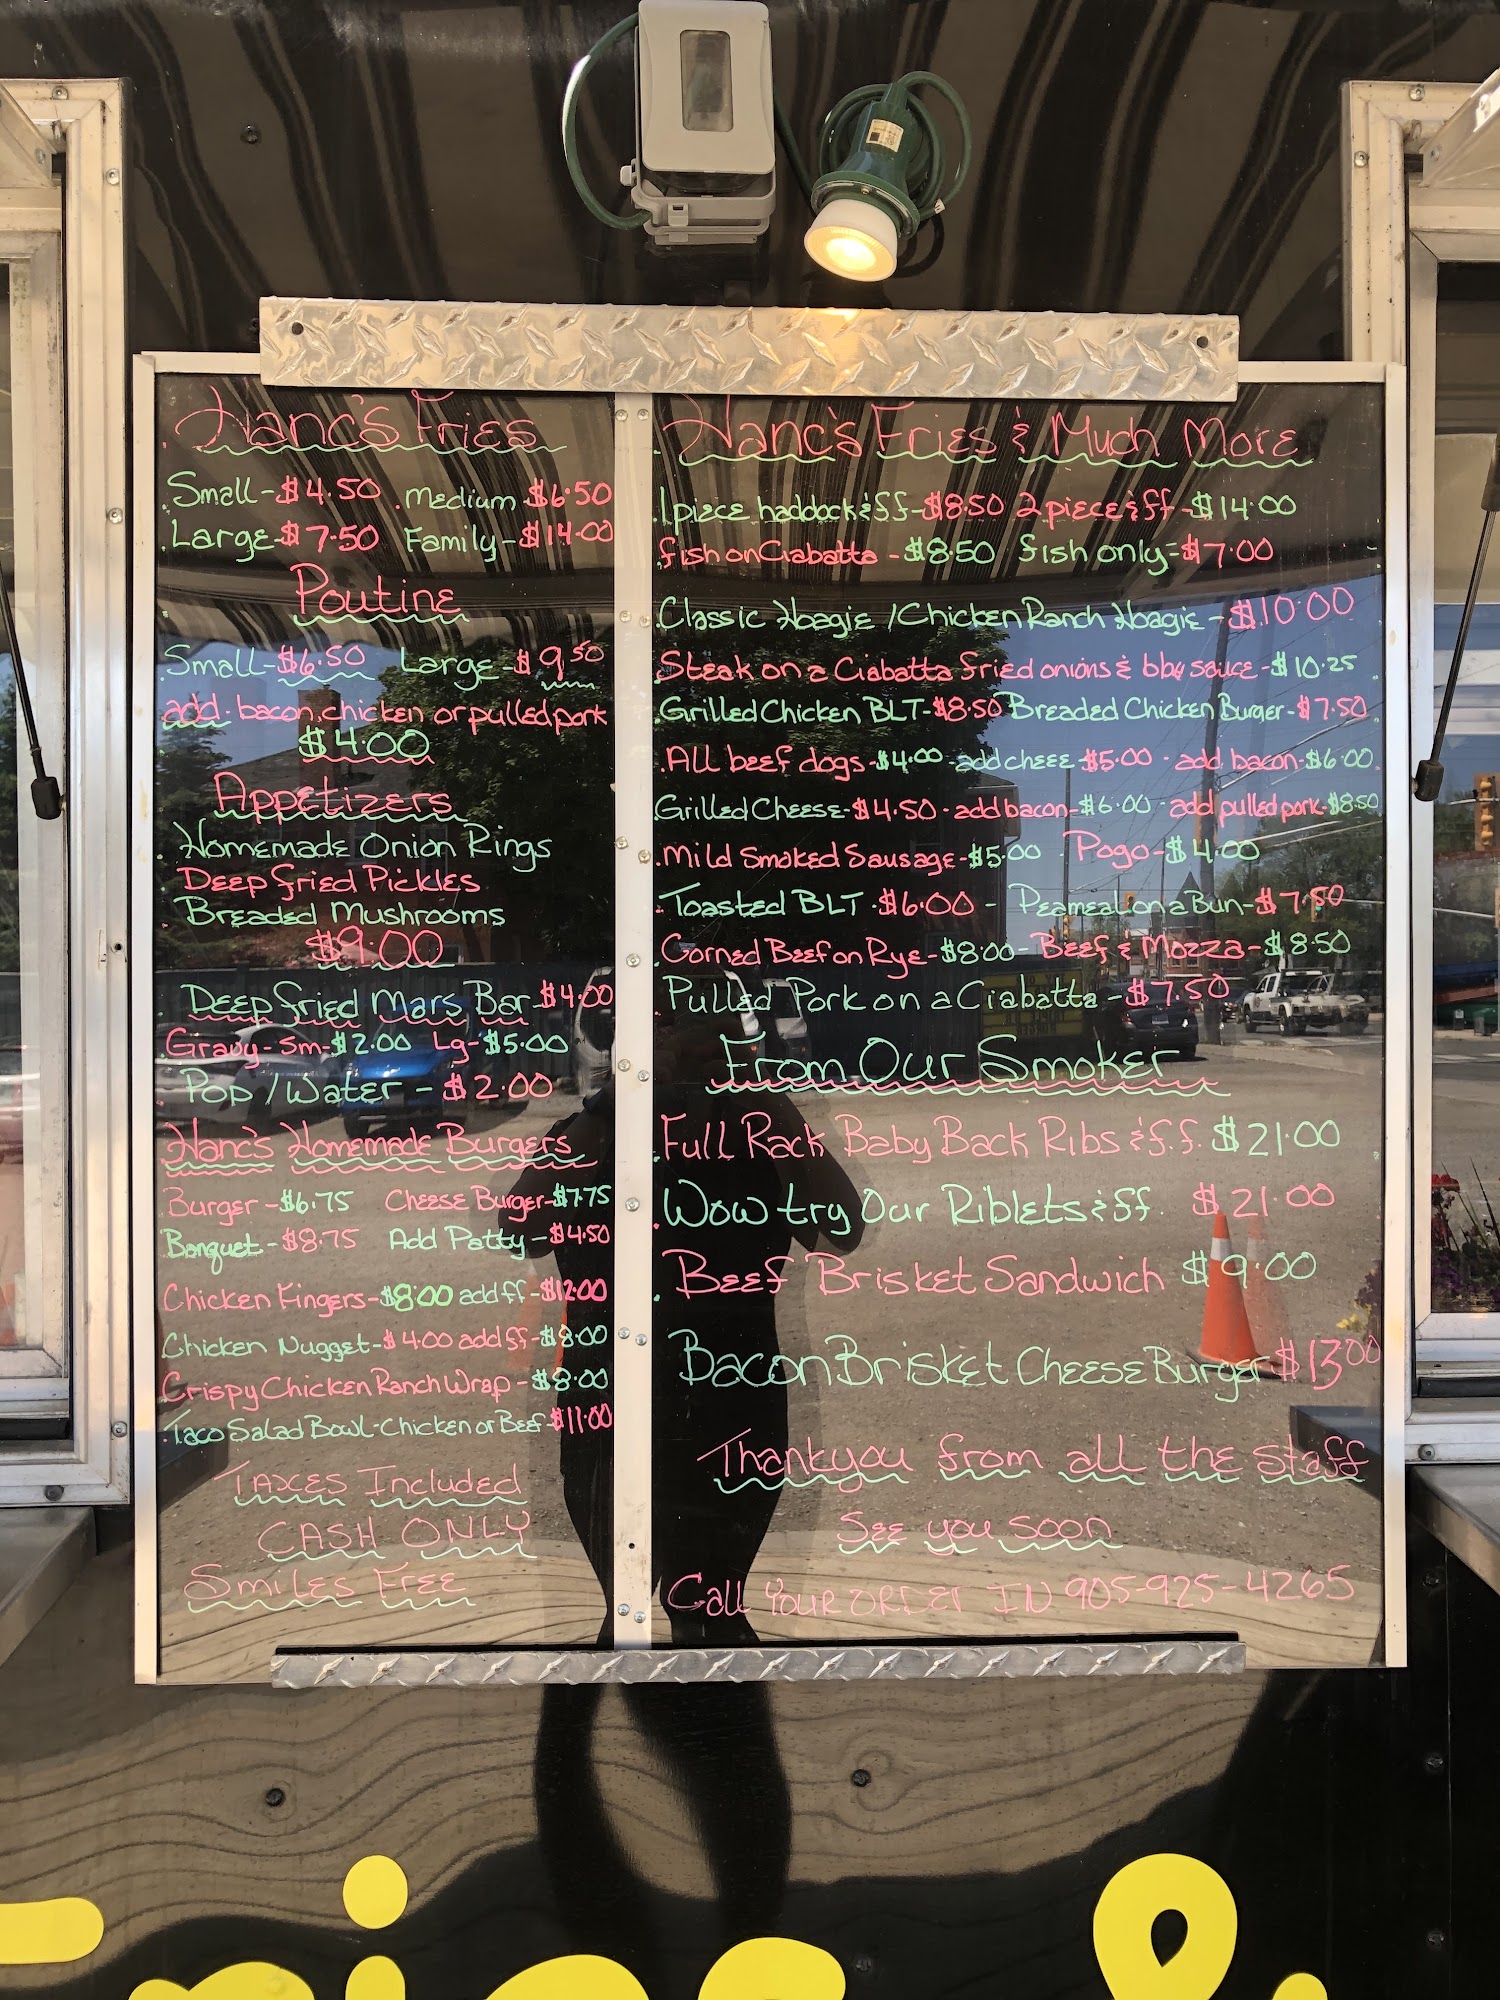 Hanc's Fries
Small-$4.50 . Medium $6.50
Large-$7.50 Family-$14.00
Poutine
Small-$6.50 Large-$9.50
add. bacon, chicken or pulled pork
$4.00
Appetizers
Homemade Onion Rings
Deep fried Pickles
Breaded Mushrooms
$9.00
Deep fried Mars Bar-$4.00
Gravy-Sm-$2.00 Lg-$5.00
Pop/Water-$2.00
Hanc's Homemade Burgers
Burger-$6.75 Cheese Burger-$7.75
Banquet-$8.75 Add Patty-$4.50
Chicken Fingers-$8.00 add ff-$12.00
Chicken Nugget-$4.00 add ff-$8.00
Crispy Chicken Ranch Wrap-$8.00
Taco Salad Bowl-Chicken or Beef-$11.00
Taxes Included
CASH ONLY
Smiles Free
Hanc's Fries & Much More
1 piece haddock & ff-$8.50 2 piece & ff-$14.00
fish on Ciabatta-$8.50 fish only-$7.00
Classic Hoagie / Chicken Ranch Hoagie-$10.00
Steak on a Ciabatta fried onions & bbq sauce-$10.25
Grilled Chicken BLT-$8.50 Breaded Chicken Burger-$7.50
All beef dogs-$4.00-add cheee-$5.00-add bacon-$6.00
Grilled Cheese-$4.50-add bacon-$6.00-add pulled pork-$8.50
Mild Smoked Sausage-$5.00-Pogo-$4.00
Toasted BLT-$6.00-Peameal on a Bun-$7.50
Corned Beef on Rye-$8.00-Beef & Mozza-$8.50
Pulled Pork on a Ciabatta-$7.50
From Our Smoker
Full Rack Baby Back Ribs & f.f. $21.00
Wow try Our Riblets & ff. $21.00
Beef Brisket Sandwich $9.00
Bacon Brisket Cheese Burger $13.00
Thankyou from all the staff
See you soon
Call YOUR ORDER IN 905-925-4265